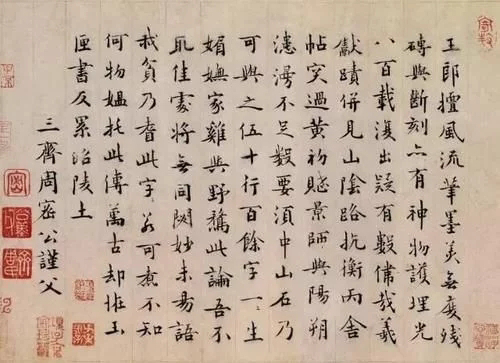 王郎擅風流筆墨美無度殘
磚與斷刻亦有神物護埋光
八百載復出疑有數哉羲
獻蹟併見山陰路抗衡兩舍
帖突過黃初賦景師與陽朔
漶漫不足數要須中山石乃
可與之伍十行百餘字一一生
媚嫵家雞與野鶩此論吾不
取佳處將無同妙未易語
我貧乃耆此字若可煮不知
何物媼托此傳萬古却玉
匣書反累昭陵土
三齊周密公謹父